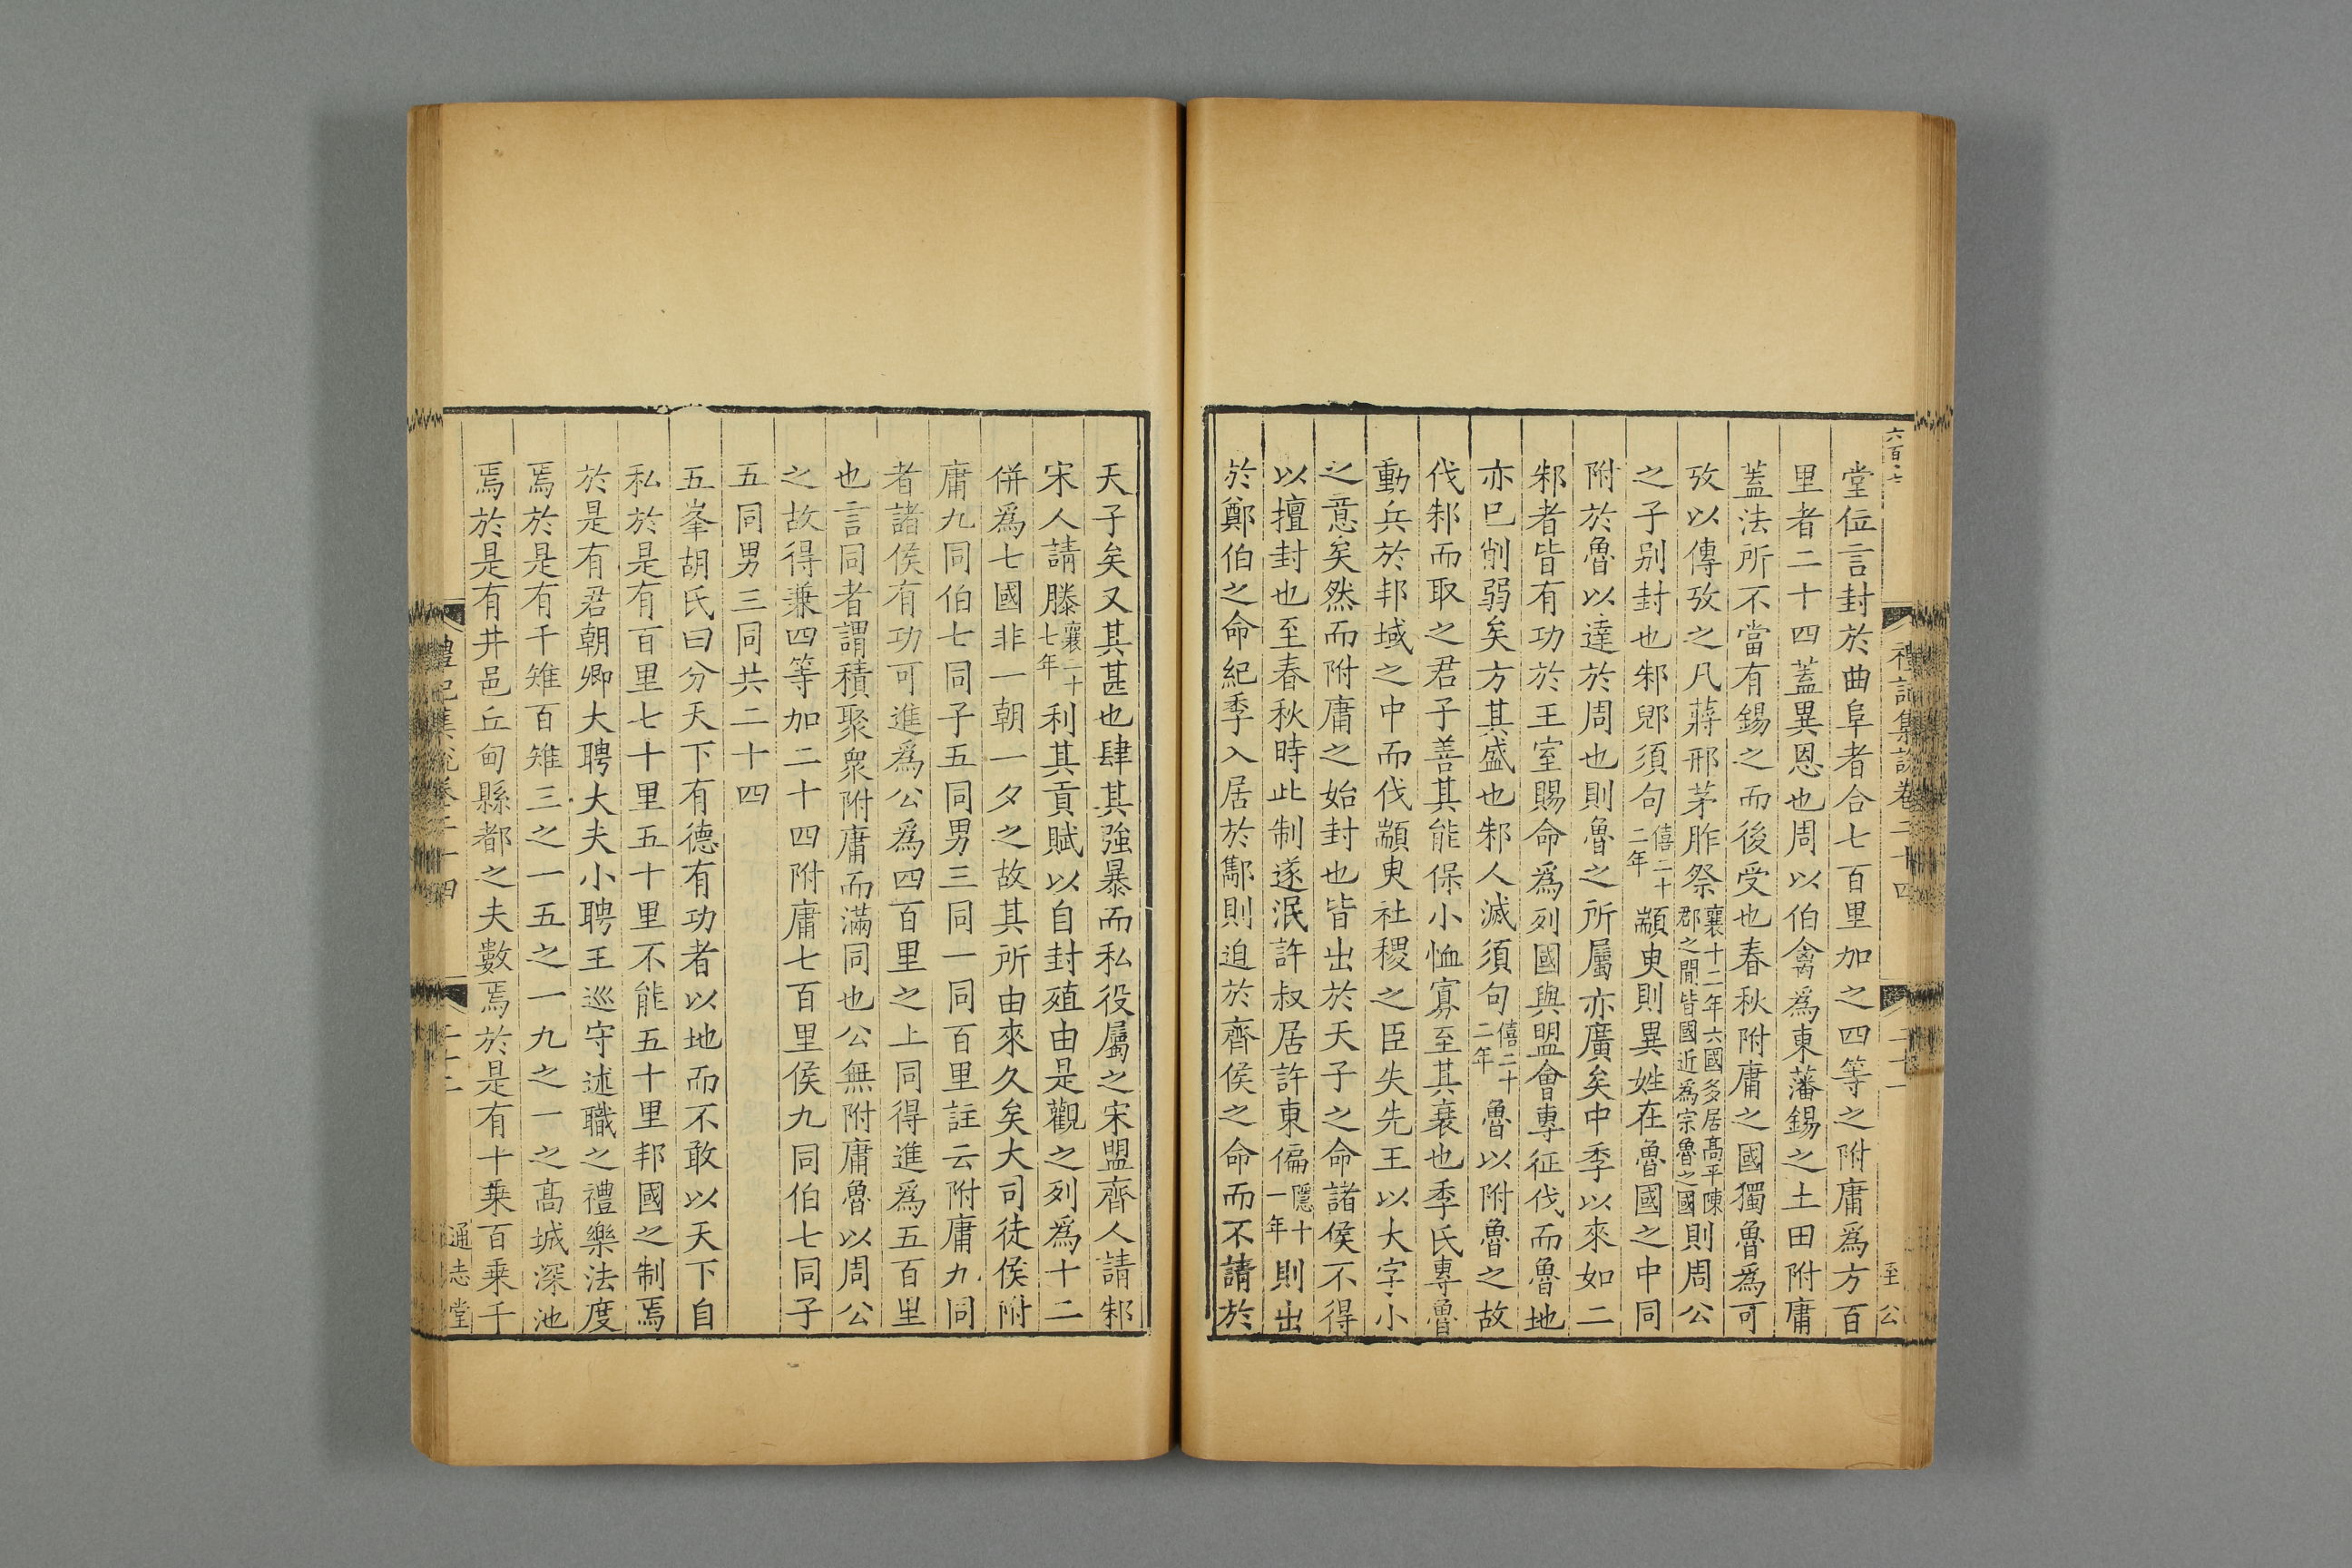 六百七
禮記集說卷二十四 二十一 至 公
堂位言封於曲阜者合七百里加之四等之附庸爲方百
里者二十四蓋異恩也周以伯禽爲東藩錫之土田附庸
蓋法所不當有錫之而後受也春秋附庸之國獨魯爲可
攷以傳攷之凡蔣邢茅胙祭襄十二年六國多居高平陳郡之間皆國近爲宗魯之國則周公
之子别封也邾郳須句僖二十二年顓臾則異姓在魯國之中同
附於魯以達於周也則魯之所屬亦廣矣中季以來如二
邾者皆有功於王室賜命爲列國與盟會專征伐而魯地
亦巳削弱矣方其盛也邾人滅須句僖二十二年魯以附魯之故
伐邾而取之君子善其能保小恤寡至其衰也季氏專魯
動兵於邦域之中而伐顓臾社稷之臣失先王以大字小
之意矣然而附庸之始封也皆出於天子之命諸侯不得
以擅封也至春秋時此制遂泯許叔居許東偏隱十一年則出
於鄭伯之命紀季入居於酅則迫於齊侯之命而不請於
天子矣又其甚也肆其強暴而私役屬之宋盟齊人請邾
宋人請滕襄二十七年利其貢賦以自封殖由是觀之列爲十二
併爲七國非一朝一夕之故其所由來久矣大司徒侯附
庸九同伯七同子五同男三同一同百里註云附庸九同
者諸侯有功可進爲公爲四百里之上同得進爲五百里
也言同者謂積聚衆附庸而滿同也公無附庸魯以周公
之故得兼四等加二十四附庸七百里侯九同伯七同子
五同男三同共二十四
五峯胡氏曰分天下有德有功者以地而不敢以天下自
私於是有百里七十里五十里不能五十里邦國之制焉
於是有君朝卿大聘大夫小聘王巡守述職之禮樂法度
焉於是有千雉百雉三之一五之一九之一之高城深池
焉於是有井邑丘甸縣都之夫數焉於是有十乗百乗千
禮記集說卷二十四 二十二 通志堂